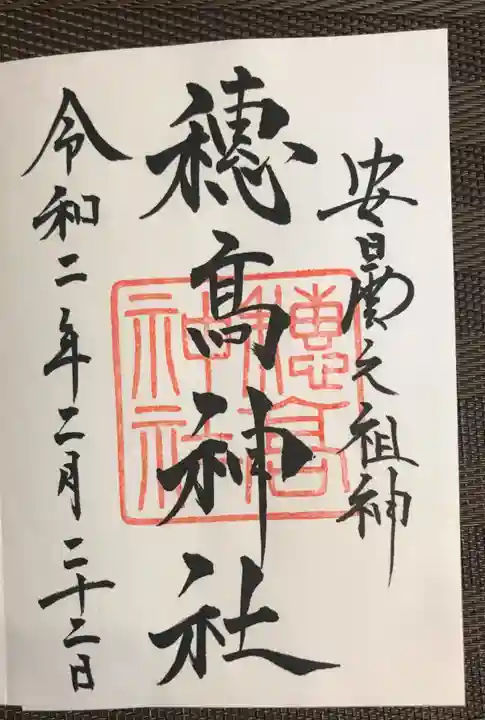 安曇之祖神
穂髙神社
令和二年二月二十二日
穂髙
神社